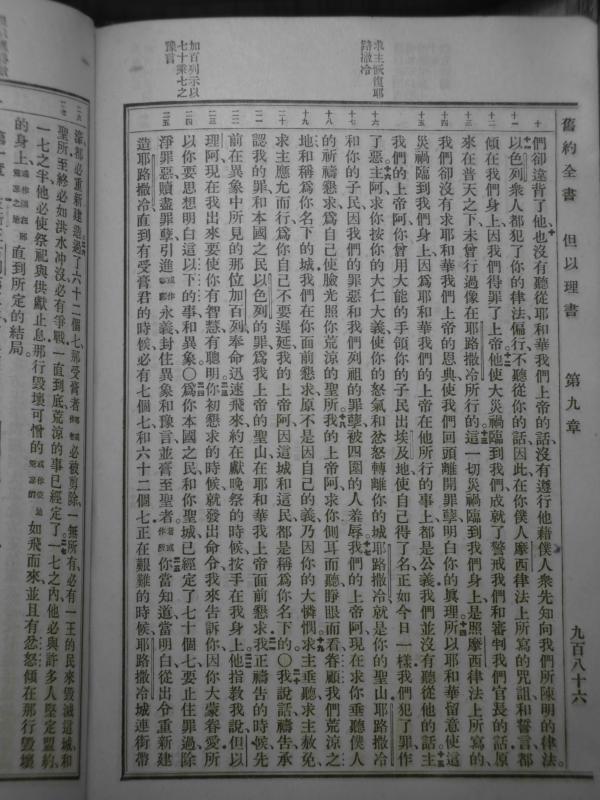 舊約全書 但以理書 第九章 九百八十六
們卻違背了他也沒有聽從耶和華我們上帝的話沒有遵行他藉僕人衆先知向我們所陳明的律法
以色列衆人都犯了你的律法偏行不聽從你的話因此在你僕人摩西律法上所寫的咒詛和誓言都
傾在我們身上因我們得罪了上帝他使大災禍臨到我們成就了警戒我們和審判我們官長的話原
來在普天之下未曾行過像在耶路撒冷所行的這一切災禍臨到我們身上是照摩西律法上所寫的
我們卻沒有求耶和華我們上帝的恩典使我們回頭離開罪孽明白你的眞理所以耶和華留意使這
災禍臨到我們身上因爲耶和華我們的上帝在他所行的事上都是公義我們並沒有聽從他的話主
我們的上帝阿你曾用大能的手領你的子民出埃及地使自己得了名正如今日一樣我們犯了罪作
求主恢復耶路撒冷
了惡主阿求你按你的大仁大義使你的怒氣和忿怒轉離你的城耶路撒冷就是你的聖山耶路撒冷
和你的子民因我們的罪惡和我們列祖的罪孽被四圍的人羞辱我們的上帝阿現在求你垂聽僕人
的祈禱懇求爲自己使臉光照你荒涼的聖所我的上帝阿求你側耳而聽睜眼而看眷顧我們荒涼之
地和稱爲你名下的城我們在你面前懇求原不是因自己的義乃因你的大憐憫求主垂聽求主赦免
求主應允而行爲你自己不要遲延我的上帝阿因這城和這民都是稱爲你名下的〇我說話禱告承
認我的罪和本國之民以色列的罪爲我上帝的聖山在耶和華我上帝面前懇求我正禱告的時候先
前在異象中所見的那位加百列奉命迅速飛來約在獻晚祭的時候按手在我身上他指教我說但以
理阿現在我出來要使你有智慧有聰明你初懇求的時候就發出命令我來告訴你因你大蒙眷愛所
加百列示以七十乘七之豫言
以你要思想明白這以下的事和異象〇爲你本國之民和你聖城已經定了七十個七要止住罪過除
淨罪惡贖盡罪孽引進永義封住異象和豫言並膏至聖者你當知道當明白從出令重新建
造耶路撒冷直到有受膏君的時候必有七個七和六十二個七正在艱難的時候耶路撒冷城連街帶
濠都必重新建造過了六十二個七那受膏者必被剪除一無所有必有一王的民來毀滅這城和
聖所至終必如洪水沖沒必有爭戰一直到底荒涼的事已經定了一七之內他必與許多人堅定盟約
一七之半他必使祭祀與供獻止息那行毀壞可憎的如飛而來並且有忿怒傾在那行毀壞
的身上直到所定的結局